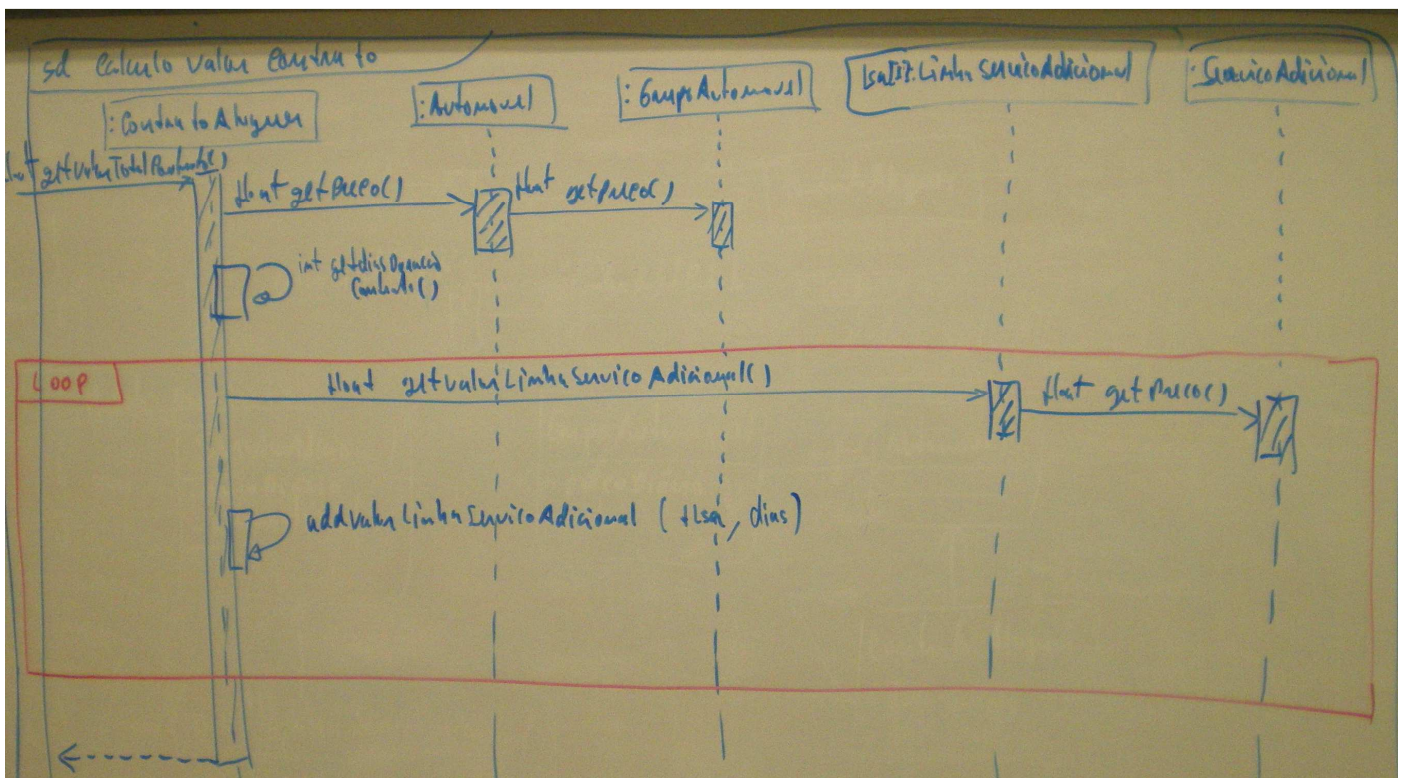 sd Calculo valor contrato
:ContratoAluguer
:Automovel
:GrupoAutomovel
lsa[i]:LinhaServicoAdicional
:ServicoAdicional
float getPreco()
float getPreco()
int getdiasDuracao
Contrato()
LOOP
float getvalorLinhaServicoAdicional()
float getPreco()
addvalorLinhaServicoAdicional (tlsa, dias)